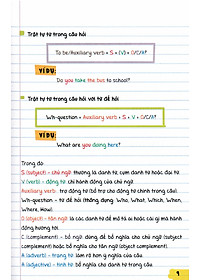 Trật tự từ trong câu hỏi
To be/Auxiliary verb + S + (V) + O/C/A?
VÍ DỤ:
Do you take the bus to school?
Trật tự từ trong câu hỏi với từ để hỏi
Wh-question + Auxiliary verb + S + V + O/C/A?
VÍ DỤ:
What are you doing here?
Trong đó:
S (subject) - chủ ngữ: thường là danh từ, cụm danh từ hoặc đại từ.
V (verb) - động từ: chỉ hành động của chủ ngữ.
Auxiliary verb: trợ động từ (bổ trợ cho động từ chính trong câu).
Wh-question - từ để hỏi (thông dụng: Who, What, Which, When, Where, How).
O (object) - tân ngữ: là các danh từ để mô tả ai hoặc cái gì mà hành động hướng tới.
C (complement) - bổ ngữ: dùng để bổ nghĩa cho chủ ngữ (subject complement) hoặc bổ nghĩa cho tân ngữ (object complement).
A (adverb) - trạng từ: làm rõ hơn ý nghĩa của câu.
A (adjective) - tính từ: bổ nghĩa cho danh từ trong câu.
9